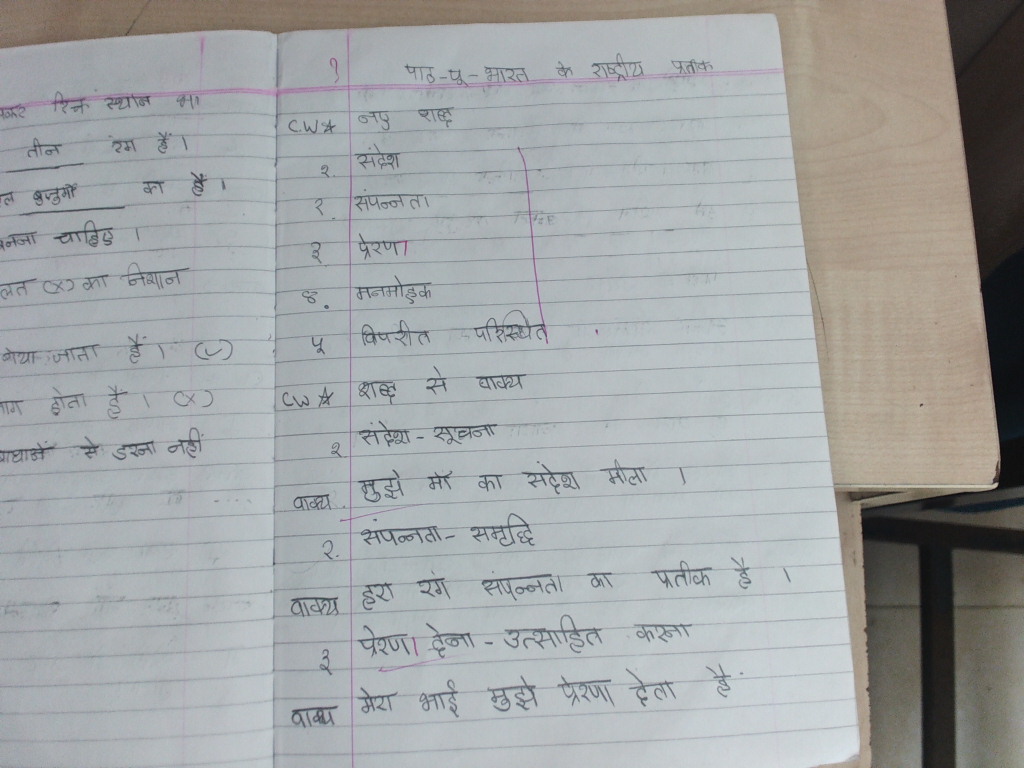 रिक्त स्थान भा
तीन रंग हैं।
का है।
चाहिए।
(x) का निशान
जाता हैं। (✓)
होता हैं। (x)
से डरना नहीं
१ पाठ-५-भारत के राष्ट्रीय प्रतीक
CW☆ नए शब्द
१. संदेश
२. संपन्नता
३ प्रेरणा
४. मनमोहक
५ विपरीत परिस्थिति
CW☆ शब्द से वाक्य
१ संदेश - सूचना
वाक्य मुझे माँ का संदेश मीला ।
२. संपन्नता - समृद्धि
वाक्य हरा रंग संपन्नता का प्रतीक है ।
३ प्रेरणा देना - उत्साहित करना
वाक्य मेरा भाई मुझे प्रेरणा देता है.